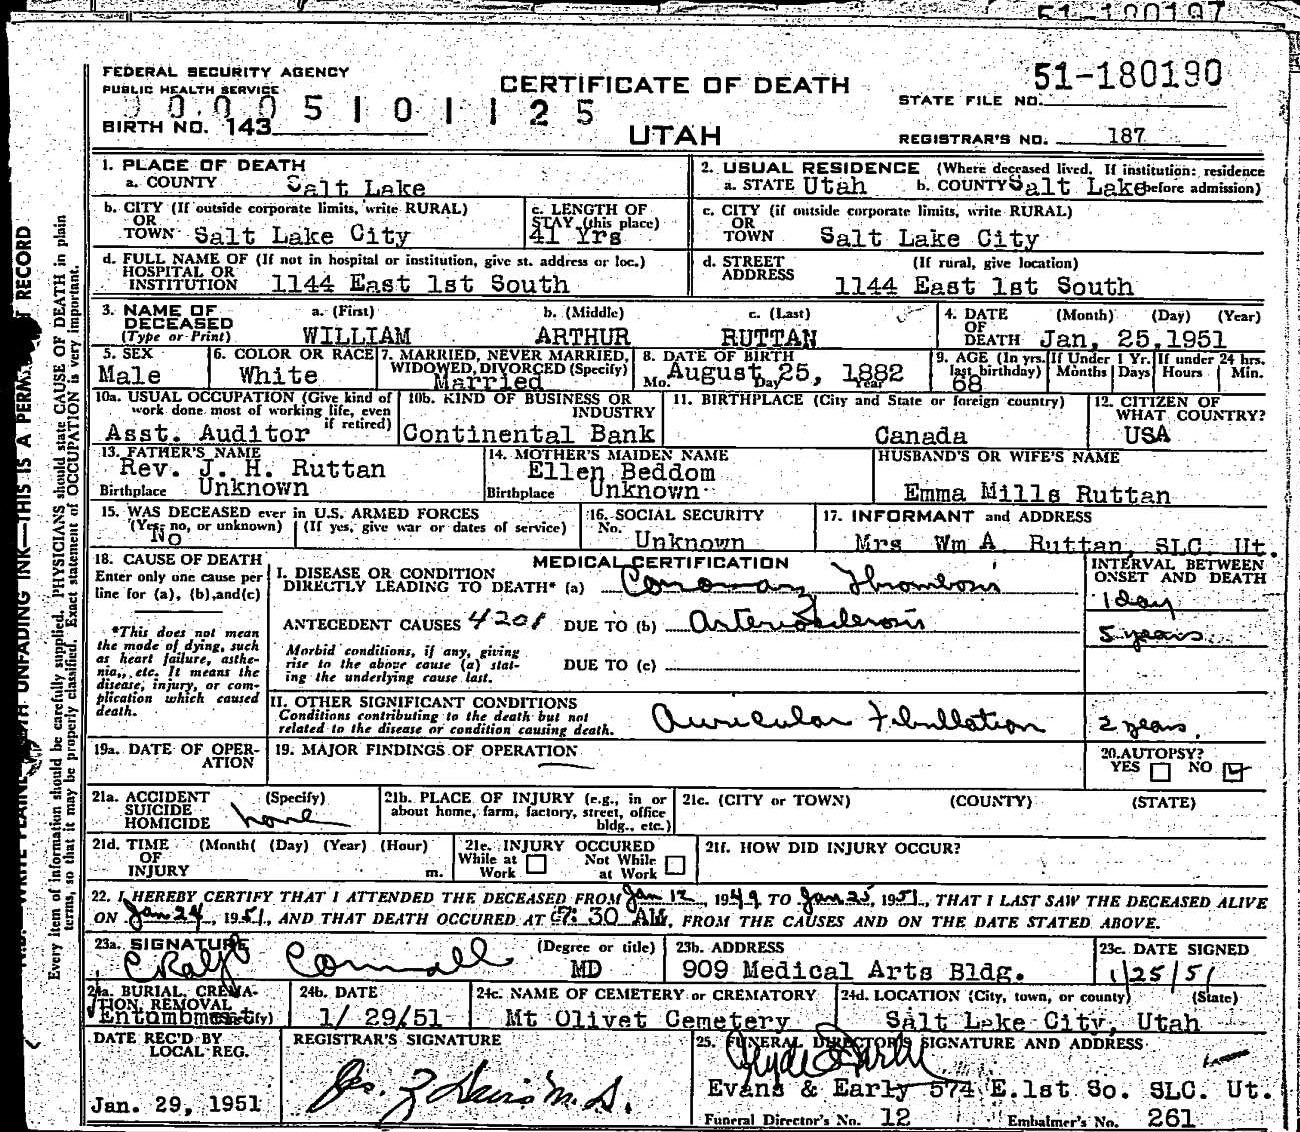 51-180197
FEDERAL SECURITY AGENCY
PUBLIC HEALTH SERVICE
CERTIFICATE OF DEATH
51-180190
STATE FILE NO.
0 0 0 0 5 1 0 1 1 2 5
BIRTH NO. 143
UTAH
REGISTRAR'S NO. 187
1. PLACE OF DEATH
a. COUNTY Salt Lake
2. USUAL RESIDENCE (Where deceased lived. If institution: residence
a. STATE Utah b. COUNTY Salt Lake before admission)
b. CITY (If outside corporate limits, write RURAL)
OR
TOWN Salt Lake City
c. LENGTH OF
STAY (this place)
41 Yrs
c. CITY (if outside corporate limits, write RURAL)
OR
TOWN Salt Lake City
d. FULL NAME OF (If not in hospital or institution, give st. address or loc.)
HOSPITAL OR
INSTITUTION 1144 East 1st South
d. STREET (If rural, give location)
ADDRESS 1144 East 1st South
3. NAME OF DECEASED (Type or Print)
a. (First) b. (Middle) c. (Last)
WILLIAM ARTHUR RUTTAN
4. DATE OF DEATH (Month) (Day) (Year)
Jan, 25,1951
5. SEX
Male
6. COLOR OR RACE
White
7. MARRIED, NEVER MARRIED,
WIDOWED, DIVORCED (Specify)
Married
8. DATE OF BIRTH
Mo. August Day 25, 1882 Year
9. AGE (In yrs. last birthday)
68
If Under 1 Yr.
Months Days
If under 24 hrs.
Hours Min.
10a. USUAL OCCUPATION (Give kind of
work done most of working life, even
if retired)
Asst. Auditor
10b. KIND OF BUSINESS OR
INDUSTRY
Continental Bank
11. BIRTHPLACE (City and State or foreign country)
Canada
12. CITIZEN OF
WHAT COUNTRY?
USA
13. FATHER'S NAME
Rev. J. H. Ruttan
Birthplace Unknown
14. MOTHER'S MAIDEN NAME
Ellen Beddom
Birthplace Unknown
HUSBAND'S OR WIFE'S NAME
Emma Mills Ruttan
15. WAS DECEASED ever in U.S. ARMED FORCES
(Yes, no, or unknown) (If yes, give war or dates of service)
No
16. SOCIAL SECURITY
No.
Unknown
17. INFORMANT and ADDRESS
Mrs Wm A Ruttan, SLC. Ut.
18. CAUSE OF DEATH
Enter only one cause per
line for (a), (b), and (c)
*This does not mean
the mode of dying, such
as heart failure, asthe-
nia,, etc. It means the
disease, injury, or com-
plication which caused
death.
MEDICAL CERTIFICATION
I. DISEASE OR CONDITION
DIRECTLY LEADING TO DEATH* (a) Coronary Thrombosis
INTERVAL BETWEEN
ONSET AND DEATH
1 day
ANTECEDENT CAUSES 4201 DUE TO (b) Arteriosclerosis
5 years
Morbid conditions, if any, giving
rise to the above cause (a) stat-
ing the underlying cause last.
DUE TO (c)
II. OTHER SIGNIFICANT CONDITIONS
Conditions contributing to the death but not
related to the disease or condition causing death.
Auricular Fibullation
2 years.
19a. DATE OF OPER-
ATION
19. MAJOR FINDINGS OF OPERATION
20. AUTOPSY?
YES NO
21a. ACCIDENT (Specify)
SUICIDE
HOMICIDE none
21b. PLACE OF INJURY (e.g., in or
about home, farm, factory, street, office
bldg., etc.)
21c. (CITY or TOWN) (COUNTY) (STATE)
21d. TIME (Month( (Day) (Year) (Hour)
OF
INJURY m.
21e. INJURY OCCURED
While at Work Not While at Work
21f. HOW DID INJURY OCCUR?
22. I HEREBY CERTIFY THAT I ATTENDED THE DECEASED FROM Jan 12, 1949 TO Jan 25, 1951., THAT I LAST SAW THE DECEASED ALIVE
ON Jan 24, 1951, AND THAT DEATH OCCURED AT 7: 30 AM, FROM THE CAUSES AND ON THE DATE STATED ABOVE.
23a. SIGNATURE (Degree or title)
C Ralf MD
23b. ADDRESS
909 Medical Arts Bldg.
23c. DATE SIGNED
1/25/51
24a. BURIAL, CREMA-
TION, REMOVAL
(Specify)
Entombment
24b. DATE
1/ 29/51
24c. NAME OF CEMETERY or CREMATORY
Mt Olivet Cemetery
24d. LOCATION (City, town, or county) (State)
Salt Lake City, Utah
DATE REC'D BY
LOCAL REG.
Jan. 29, 1951
REGISTRAR'S SIGNATURE
25. FUNERAL DIRECTOR'S SIGNATURE AND ADDRESS
Evans & Early 574 E.1st So. SLC. Ut.
Funeral Director's No. 12 Embalmer's No. 261
UNFADING INK—THIS IS A
RECORD
Every item of information should be carefully supplied. PHYSICIANS should state CAUSE OF DEATH in plain
terms, so that it may be properly classified. Exact statement of OCCUPATION is very important.